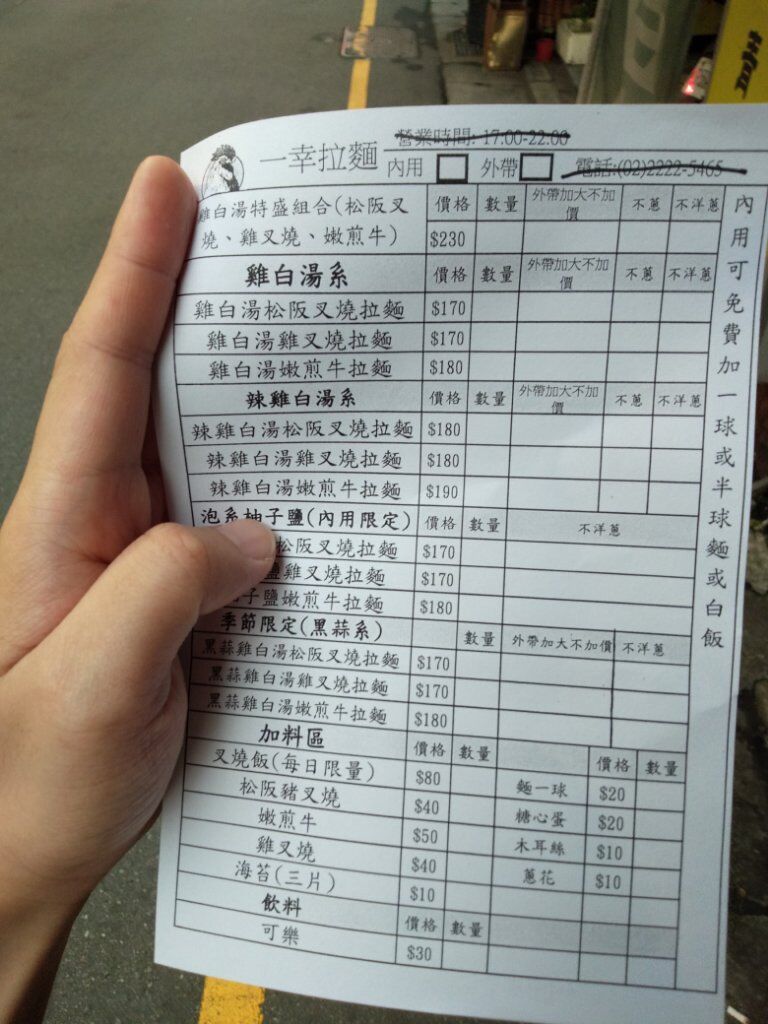 一幸拉麵
營業時間: 17.00-22.00
內用 外帶 電話:(02)2222-5465
雞白湯特盛組合(松阪叉燒、雞叉燒、嫩煎牛) 價格 數量 外帶加大不加價 不蔥 不洋蔥
$230
雞白湯系 價格 數量 外帶加大不加價 不蔥 不洋蔥
雞白湯松阪叉燒拉麵 $170
雞白湯雞叉燒拉麵 $170
雞白湯嫩煎牛拉麵 $180
辣雞白湯系 價格 數量 外帶加大不加價 不蔥 不洋蔥
辣雞白湯松阪叉燒拉麵 $180
辣雞白湯雞叉燒拉麵 $180
辣雞白湯嫩煎牛拉麵 $190
泡系柚子鹽(內用限定) 價格 數量 不洋蔥
松阪叉燒拉麵 $170
鹽雞叉燒拉麵 $170
子鹽嫩煎牛拉麵 $180
季節限定(黑蒜系) 數量 外帶加大不加價 不洋蔥
黑蒜雞白湯松阪叉燒拉麵 $170
黑蒜雞白湯雞叉燒拉麵 $170
黑蒜雞白湯嫩煎牛拉麵 $180
加料區 價格 數量 價格 數量
叉燒飯(每日限量) $80 麵一球 $20
松阪豬叉燒 $40 糖心蛋 $20
嫩煎牛 $50 木耳絲 $10
雞叉燒 $40 蔥花 $10
海苔(三片) $10
飲料 價格 數量
可樂 $30
內用可免費加一球或半球麵或白飯